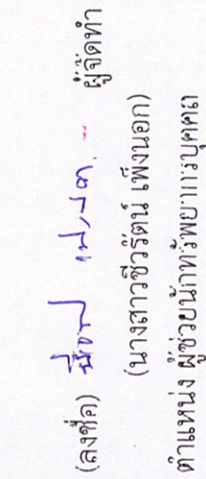 (ลงชื่อ) ผู้จัดทำ
(นางสาวชีวรัตน์ เพ็งนอก)
ตำแหน่ง ผู้ช่วยเจ้าหน้าที่ทรัพยากรบุคคล